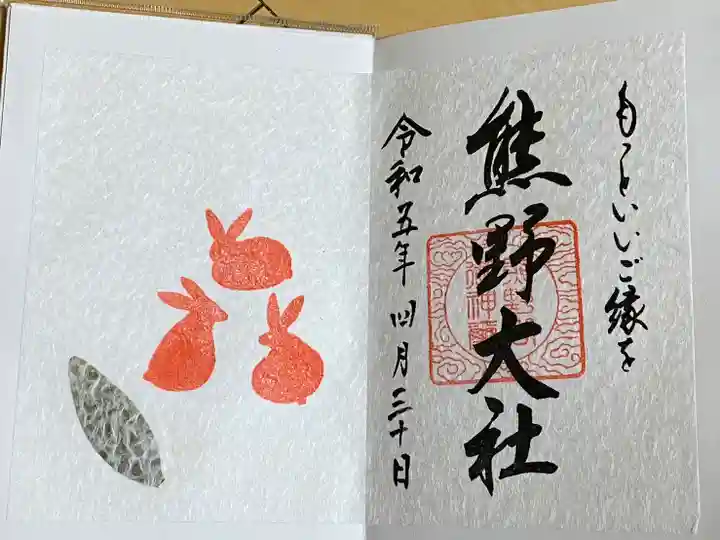 もっといいご縁を
熊野大社
令和五年 四月三十日